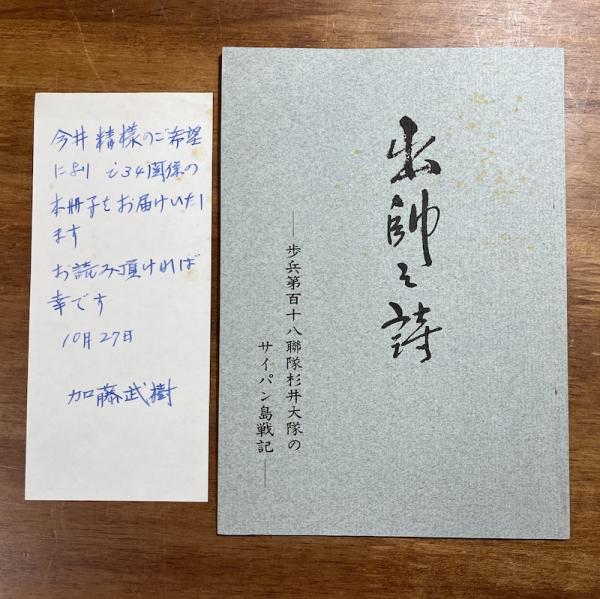 今井 精様のご希望
により i34関係の
本冊子をお届けいたし
ます
お読み頂ければ
幸です
10月27日
加藤武樹
出師之詩
―歩兵第百十八聯隊杉井大隊の
サイパン島戦記―